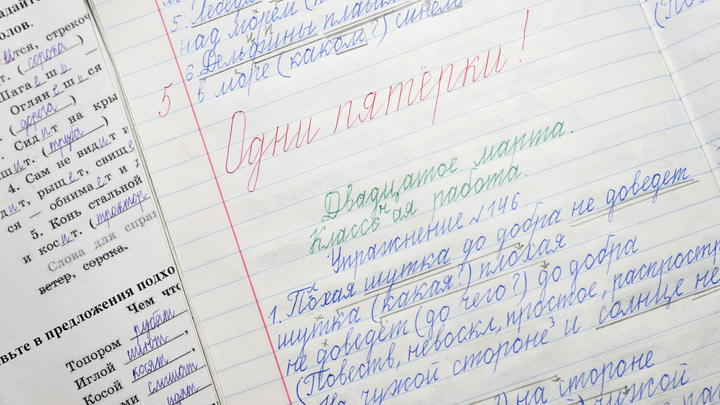 адайт
олов.
ится, стрекоч
т. (сорока)
Шагаешь
Оглянешься
(дорога)
Сидит на кры
шит. (труба)
4. Сам не видит и
дит, рыщет, свище
ся — обнимает и д
5. Конь стальной
и косит. (трактор
Слова для спра
ветер, сорока.
вьте в предложения подхо
Чем что
Топором рубят
Иглой шьют,
Косой косят,
5. Лебеди
над морем (к
6. Дельфины плавали
в море (каком?) синем
5
Одни пятёрки!
Двадцатое марта.
Классная работа.
Упражнение №146
1. Плохая шутка до добра не доведет
шутка (какая?) плохая
не доведет (до чего?) до добра
(Повеств, невоскл, простое, распростр
На чужой стороне и солнце не
на стороне
чужой
(По